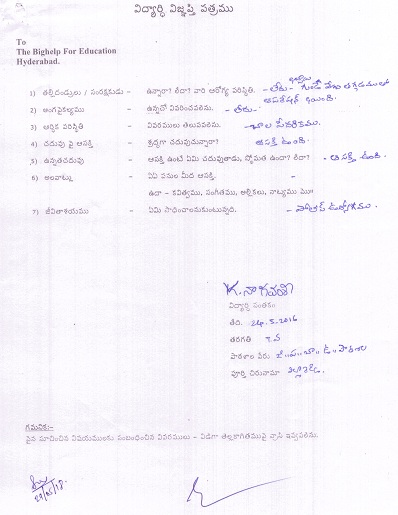 విద్యార్ధి విజ్ఞప్తి పత్రము
To
The Bighelp For Education
Hyderabad.
1) తల్లిదండ్రులు / సంరక్షకుడు - ఉన్నారా? లేదా? వారి ఆరోగ్య పరిస్థితి. - లేదు-
ఆపరేషన్ అయింది.
2) అంగవైకల్యము - ఉన్నచో వివరించవలెను. - లేదు-
3) ఆర్ధిక పరిస్థితి - వివరములు తెలుపవలెను. - చాల పేదరికము.
4) చదువు పై ఆసక్తి - శ్రద్ధగా చదువుచున్నారా? ఆసక్తి ఉంది.
5) ఉన్నతచదువు - ఆసక్తి ఉంటే ఏమి చదువుతాడు, స్తోమత ఉందా? లేదా? - ఆసక్తి ఉంది.
6) అలవాట్లు - ఏఏ పనుల మీద ఆసక్తి. -
ఉదా - కవిత్వము, సంగీతము, ఆర్టికలు, నాట్యము మొ॥
7) జీవితాశయము - ఏమి సాధించాలనుకుంటున్నది. - పోలీస్ ఉద్యోగము.
K. నాగవల్లి
విద్యార్ధి సంతకం
తేది. 24.5.2016
తరగతి
పాఠశాల పేరు జి॥ప॥బా॥ఉ॥పాఠశాల
పూర్తి చిరునామా
గమనిక:-
పైన సూచించిన విషయములకు సంబంధించిన వివరములు - విడిగా తెల్లకాగితముపై వ్రాసి ఇవ్వవలెను.